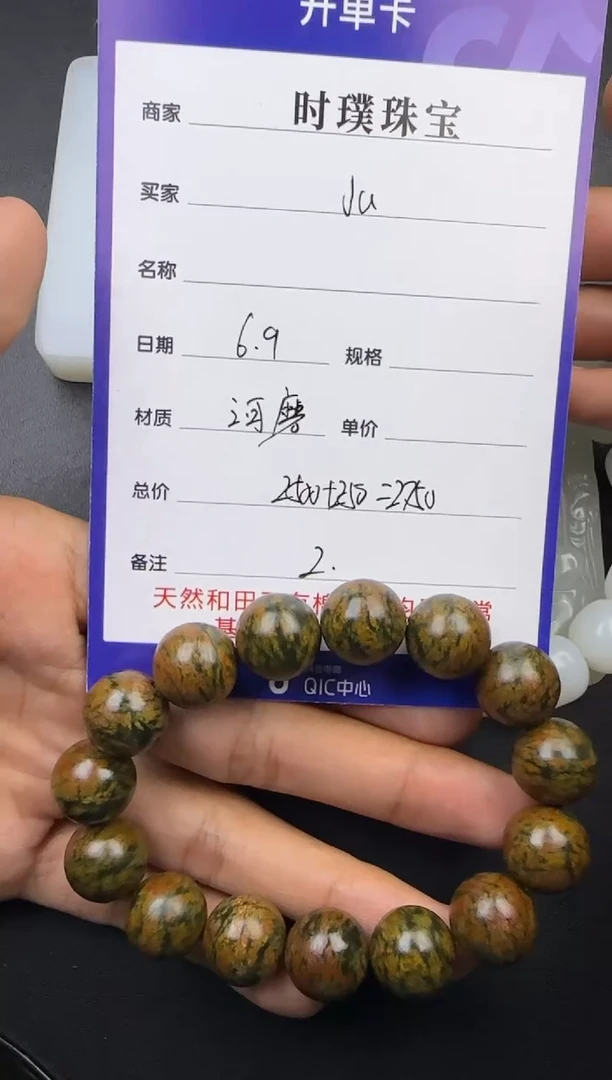 开单卡
商家 时璞珠宝
买家 Ju
名称
日期 6.9 规格
材质 河磨 单价
总价 2500+250=2750
备注 2.
天然和田玉有棉
基
QIC中心